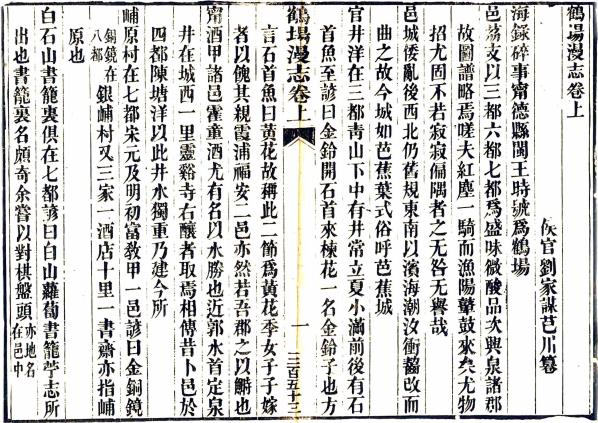 鶴場漫志卷上
侯官劉家謀芑川纂
海錄碎事甯德縣閩王時號爲鶴場
邑荔支以三都六都七都爲盛味微酸品次興泉諸郡
故圖譜略焉嗟夫紅塵一騎而漁陽鼙鼓來矣尤物
招尤固不若寂寂偏隅者之无咎无譽哉
邑城倭亂後西北仍舊規東南以濱海潮汐衝齧改而
曲之故今城如芭蕉葉式俗呼芭蕉城
官井洋在三都靑山下中有井常立夏小滿前後有石
首魚至諺曰金鈴開石首來楝花一名金鈴子也方
鶴場漫志卷上
一
三百五十三
言石首魚曰黃花故稱此二節爲黃花季女子子嫁
者以傀其親霞浦福安二邑亦然若吾郡之以鱭也
甯酒甲諸邑霍童酒尤有名以水勝也近郭水首定泉
井在城西一里靈谿寺右釀者取焉相傳昔卜邑於
四都陳塘洋以此井水獨重乃建今所
峬原村在七都宋元及明初富敎甲一邑諺曰金銅鏡
銅鏡在八都銀峬村又三家一酒店十里一書齋亦指峬
原也
白石山書籠裏俱在七都諺曰白山蘿蔔書籠苧志所
出也書籠裏名頗奇余嘗以對棋盤頭亦地名在邑中